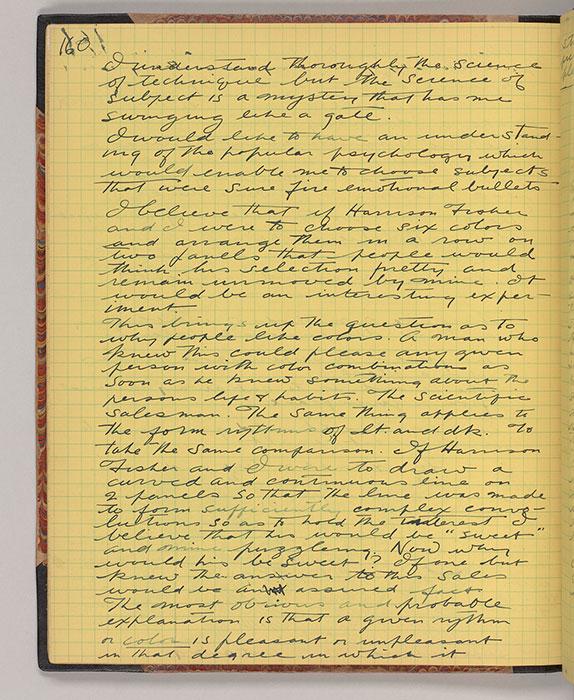 160
I understand thoroughly the science
of technique but the science of
subject is a mystery that has me
swinging like a gate.
I would like to have an understand-
ing of the popular psychology which
would enable me to choose subjects
that were sure fire emotional bullets
I believe that if Harrison Fisher
and I were to choose six colors
and arrange them in a row on
two panells that people would
think his selection pretty and
remain unmoved by mine. It
would be an interesting exper-
iment.
This brings up the question as to
why people like colors. A man who
knew this could please any given
person with color combinations as
soon as he knew something about the
persons life & habits. The scientific
salesman. The same thing applies to
the form rythms of lt. and dk. To
take the same comparison. If Harrison
Fisher and I were to draw a
curved and continuous line on
2 panels so that the line was made
to form sufficiently complex convo-
lutions so as to hold the interest I
believe that his would be "sweet"
and mine puzzleing. Now why
would his be sweet? If one but
knew the answer to this sales
would be an assured fact
The most obvious and probable
explanation is that a given rythm
or color is pleasant or unpleasant
in that degree in which it